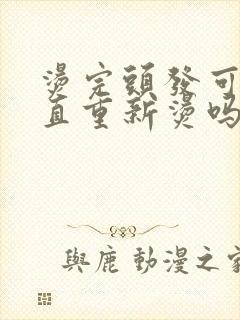 燙完頭發可
直重新燙嗎
與鹿動漫之家